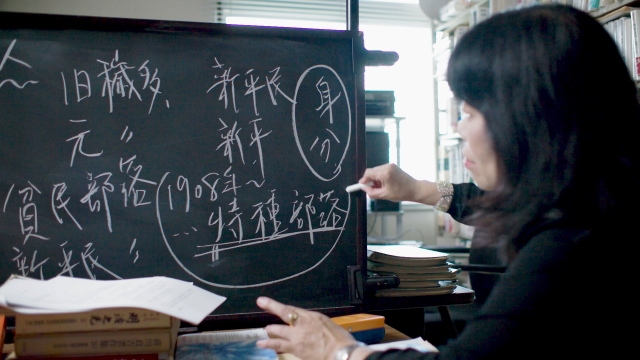 人〜
旧穢多、
元〃
貧民部落
新平民〃
新平民
新平
身分
1908年〜
…特種部落